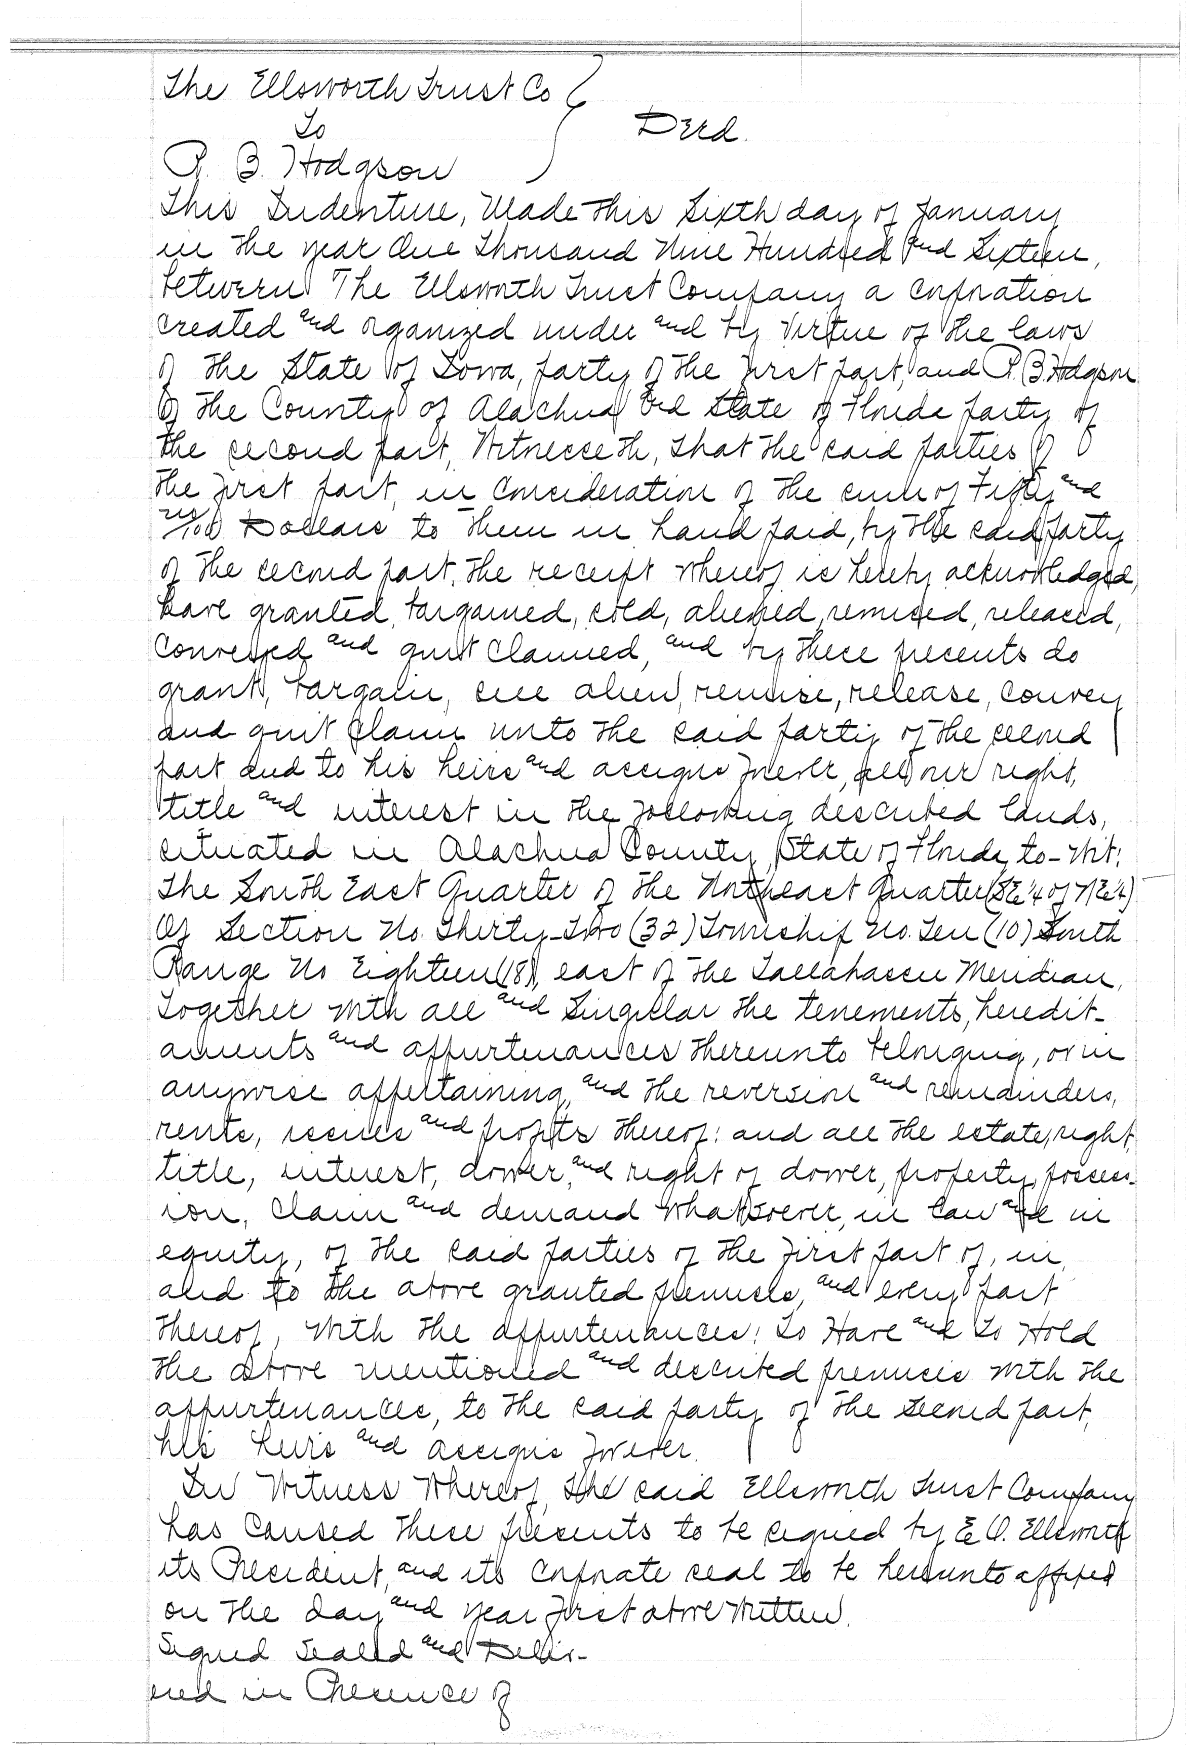 The Ellsworth Trust Co
To
Deed.
P. B. Hodgson
This Indenture, Made this Sixth day of January
in the year One Thousand Nine Hundred and Sixteen,
between The Ellsworth Trust Company a corporation
created and organized under and by Virtue of the laws
of the State of Iowa, party of the first part, and P. B. Hodgson
Of the County of Alachua and State of Florida party of
the second part, Witnesseth, that the said parties of
the first part, in consideration of the sum of Fifty and
no/100 Dollars to them in hand paid, by the said party
of the second part, the receipt whereof is hereby acknowledged,
have granted, bargained, sold, aliened, remised, released,
conveyed and quit claimed, and by these presents do
grant, bargain, sell alien, remise, release, convey
and quit claim unto the said party of the second
part and to his heirs and assigns forever, all our right,
title and interest in the following described lands,
situated in Alachua County, State of Florida, to-wit:
The South East Quarter of the Northeast Quarter (SE 1/4 of NE 1/4)
Of Section No. Thirty-Two (32) Township No. Ten (10) South
Range No Eighteen (18), east of the Tallahassee Meridian,
Together with all and Singular the tenements, heredit-
aments and appurtenances thereunto belonging, or in
anywise appertaining, and the reversion and remainders,
rents, issues and profits thereof: and all the estate, right,
title, interest, dower, and right of dower, property, possess-
ion, claim and demand whatsoever, in law and in
equity, of the said parties of the first part of, in,
and to the above granted premises, and every part
thereof, with the appurtenances: To Have and To Hold
the above mentioned and described premises with the
appurtenances, to the said party of the second part,
his heirs and assigns forever.
In Witness Whereof, the said Ellsworth Trust Company
has caused these presents to be signed by E. O. Ellsworth
its President, and its corporate seal to be hereunto affixed
on the day and year first above written.
Signed Sealed and Deliv-
ered in Presence of